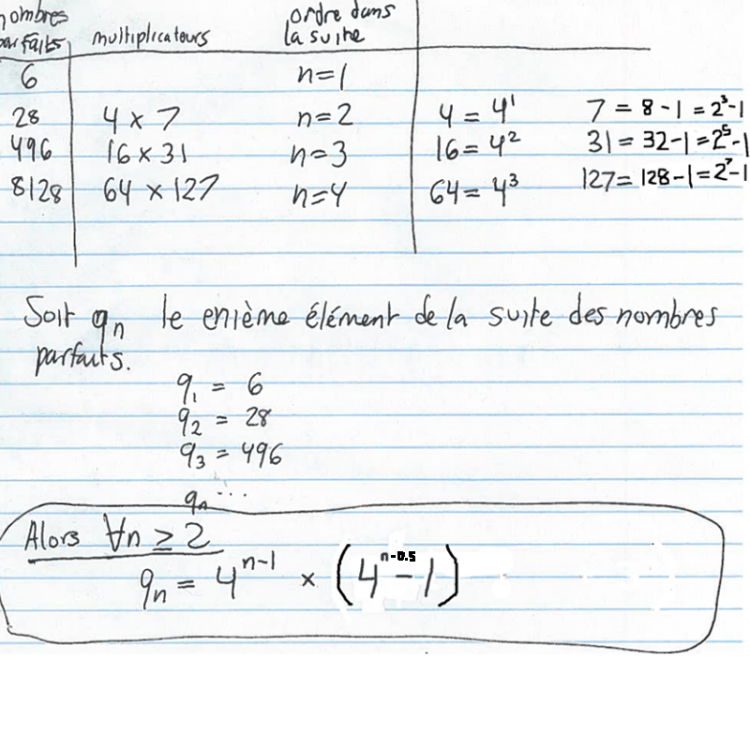 nombres parfaits multiplicateurs ordre dans la suite
6 n=1
28 4 x 7 n=2 4 = 4¹ 7 = 8-1 = 2³-1
496 16 x 31 n=3 16 = 4² 31 = 32-1 = 2⁵-1
8128 64 x 127 n=4 64 = 4³ 127 = 128-1 = 2⁷-1
Soit qₙ le enième élément de la suite des nombres
parfaits.
q₁ = 6
q₂ = 28
q₃ = 496
qₙ ...
Alors ∀n ≥ 2
qₙ = 4ⁿ⁻¹ x (4^(n-0.5) - 1)